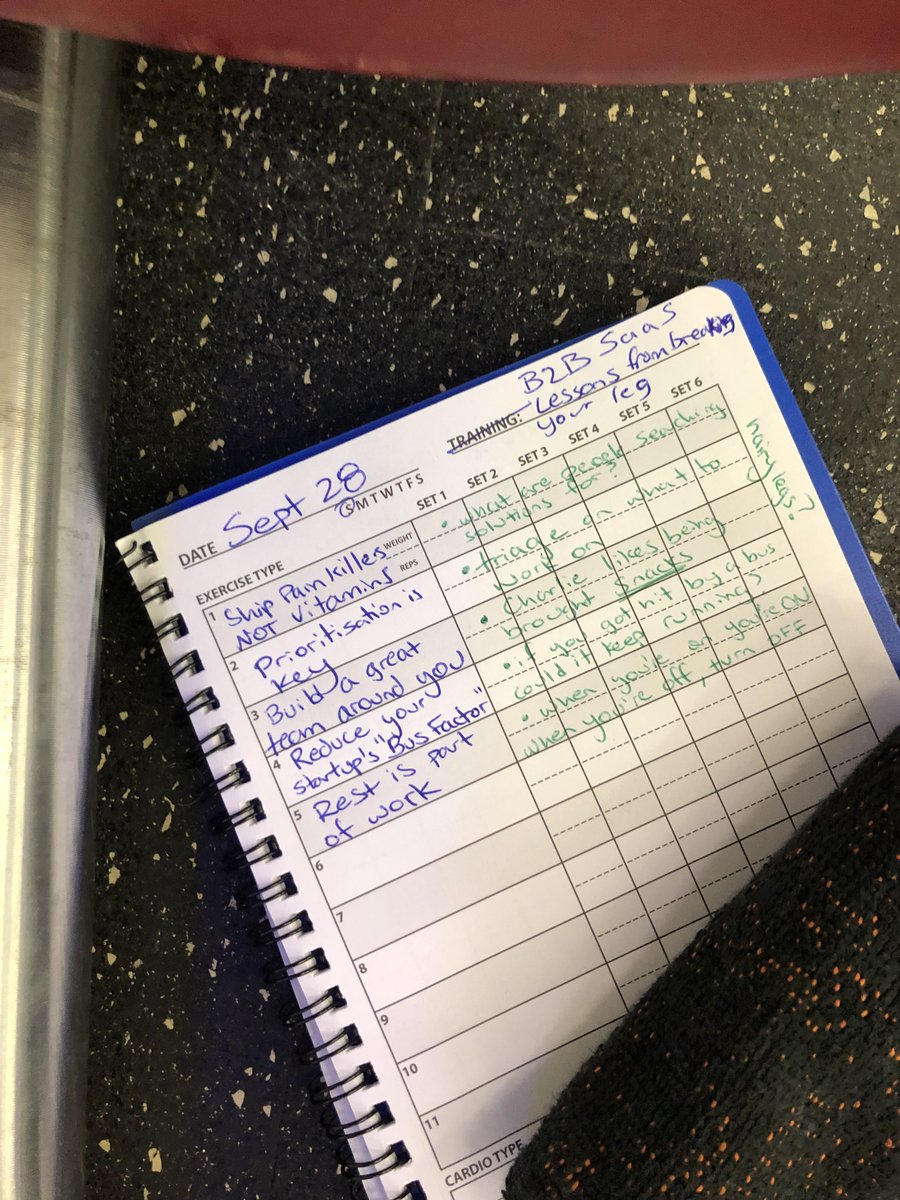 B2B SaaS
TRAINING: - Lessons from breaking
your leg
DATE Sept 28
S M T W T F S
EXERCISE TYPE
WEIGHT
REPS
SET 1 SET 2 SET 3 SET 4 SET 5 SET 6
1 Ship Painkilles
NOT Vitamins
• what are people searching
solutions for?
hairy legs?
2 Prioritisation is
key
• triage on what to
work on
3 Build a great
team around you
• Charlie likes being
brought snacks
4 Reduce your
startup's "Bus Factor"
• if you got hit by a bus
could it keep running?
5 Rest is part
of work
• when you're on you're ON
when you're off, turn OFF
6
7
8
9
10
11
CARDIO TYPE